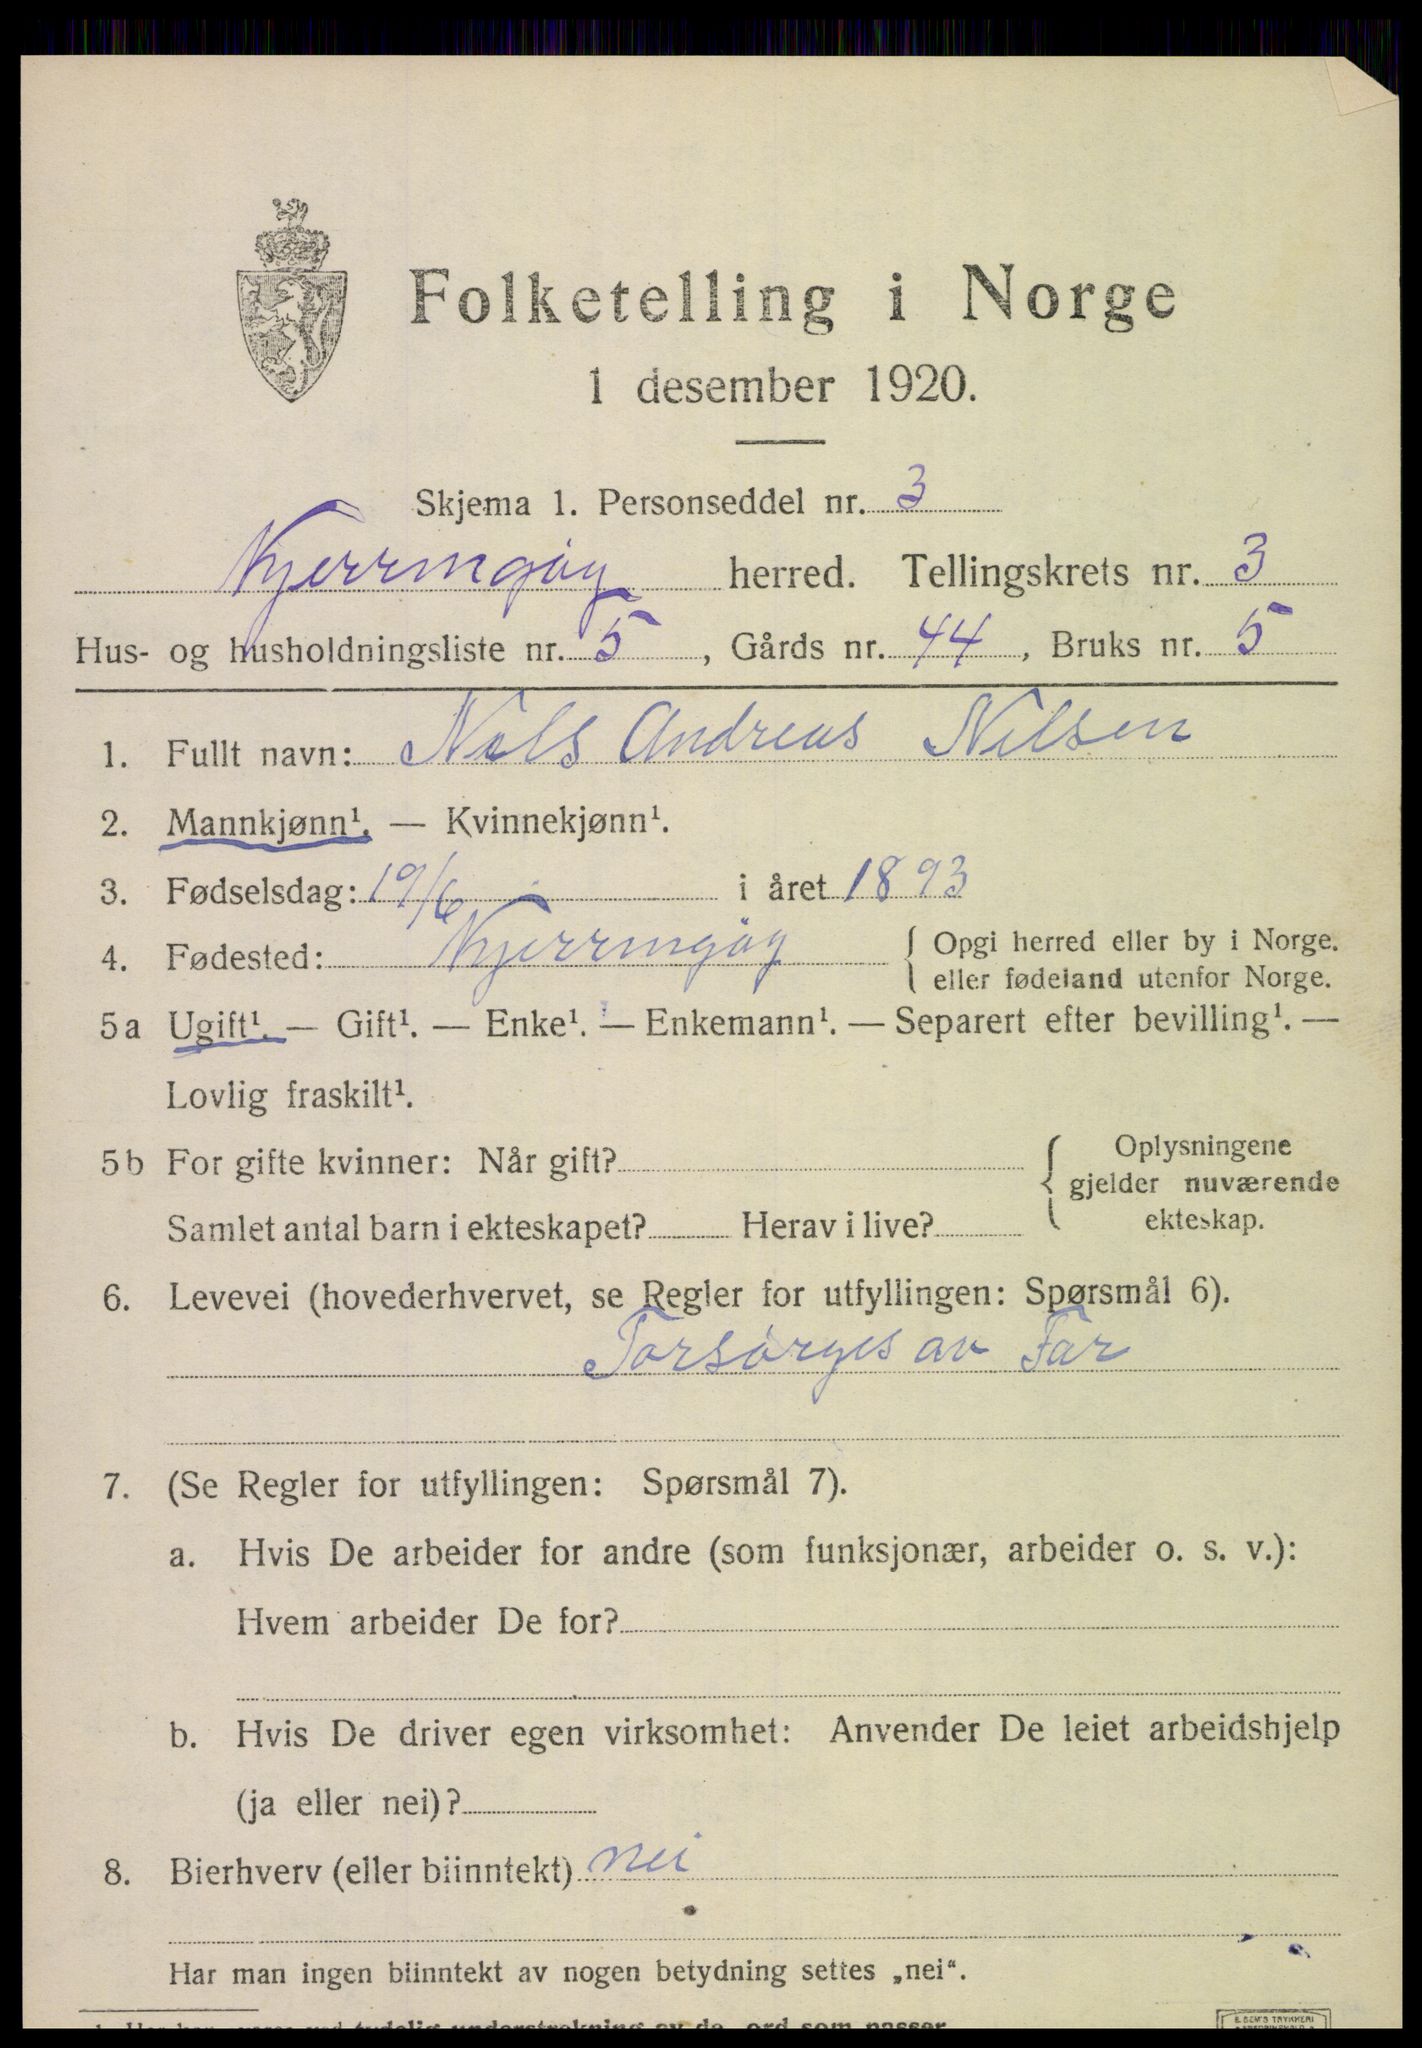 Folketelling i Norge
1 desember 1920.
Skjema 1. Personseddel nr. 3
Kjerringöy herred. Tellingskrets nr. 3
Hus- og husholdningsliste nr. 5, Gårds nr. 44, Bruks nr. 5
1. Fullt navn: Nils Andreas Nilsen
2. Mannkjønn¹. — Kvinnekjønn¹.
3. Fødselsdag: 19/6 i året 1893
4. Fødested: Kjerringöy { Opgi herred eller by i Norge.
eller fødeland utenfor Norge.
5a Ugift¹. — Gift¹. — Enke¹. — Enkemann¹. — Separert efter bevilling¹. —
Lovlig fraskilt¹.
5b For gifte kvinner: Når gift? { Oplysningene
gjelder nuværende
Samlet antal barn i ekteskapet? Herav i live? ekteskap.
6. Levevei (hovederhvervet, se Regler for utfyllingen: Spørsmål 6).
Forsörges av Far
7. (Se Regler for utfyllingen: Spørsmål 7).
a. Hvis De arbeider for andre (som funksjonær, arbeider o. s. v.):
Hvem arbeider De for?
b. Hvis De driver egen virksomhet: Anvender De leiet arbeidshjelp
(ja eller nei)?
8. Bierhverv (eller biinntekt) nei
Har man ingen biinntekt av nogen betydning settes „nei".
tydelig understrekning av de ord som passer
E. SEM'S TRYKKERI